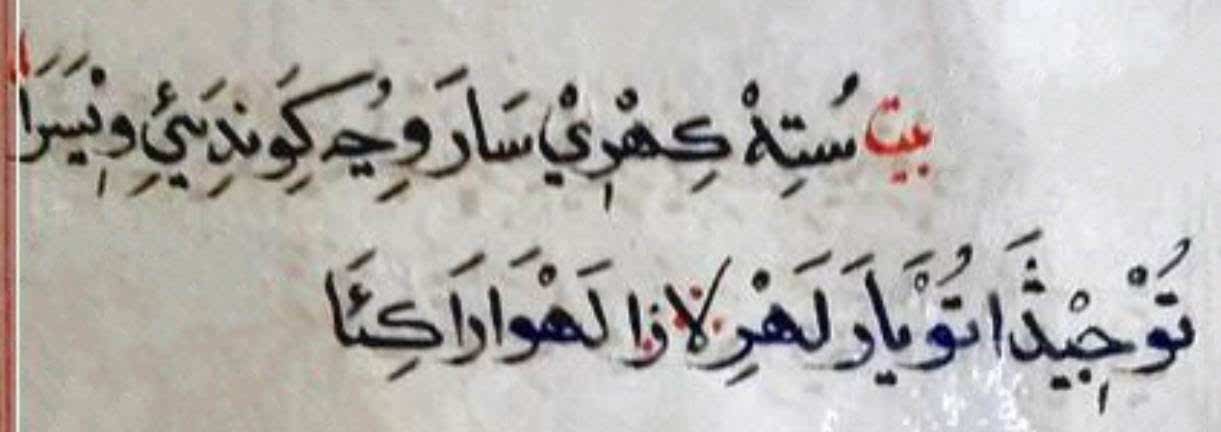 بيت سُتِهْ كِهْرِيْ سَارَ وِچُ كَوِندِيَئِي وِيْسَرَا
تُوْ جِيْڎَا تُوْ يَارَ لَهْرِ لَاڎا لَهْوَارَا كِئَا